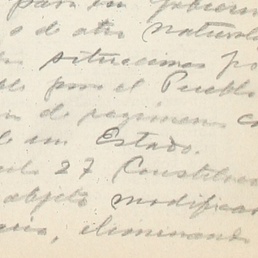 para un gobierno
o de otra naturale
situaciones po
de por el Pueblo
de regímenes co
de un Estado.
27 Constituci
objeto modificar
eliminando